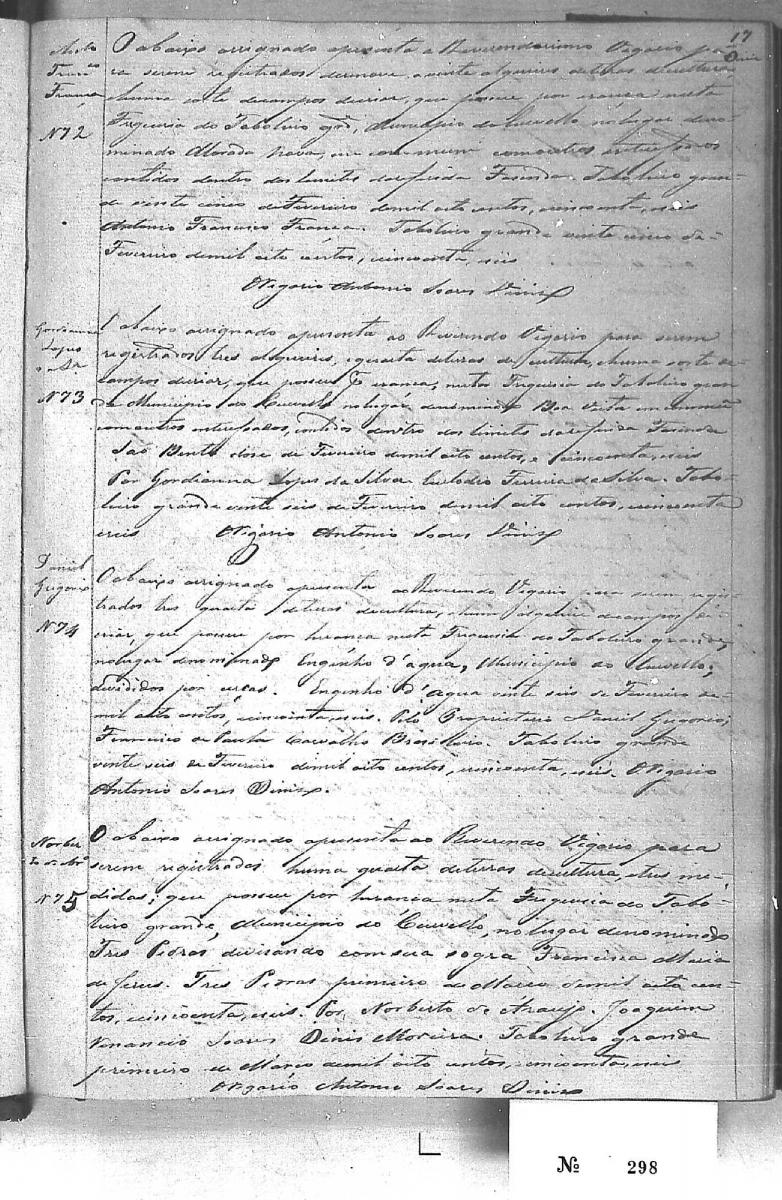 17
Diniz
Anto
Franco
França
N72
O abaixo assignado apresenta o Reverendissimo Vigario pa-
ra serem registrados desenove, a vinte alqueires deterras decultura
ehuma sorte decampos decriar, que possue por erança nesta
Freguesia do Taboleiro gde, Municipio do Curvello no lugar deno-
minado Morada Nova, em commum comoutros interessados
contidos dentro dos limites dareferida Fasenda. Taboleiro gran-
de vinte cinco de Fevereiro demil oito centos, eincoenta, eseis
Antonio Francisco França. Taboleiro grande vinte cinco de
Fevereiro demil oito centos, cincoenta, eseis
OVigario Antonio Soares Diniz
Gordianna
Lopes
da Sa
N73
O abaixo assignado apresenta ao Reverendo Vigario para serem
registrados tres alqueires, equarta deterras decultura, ehuma sorte de
campos decriar, que possue por erança, nesta Freguesia do Taboleiro gran
de Municipio do Curvello nolugar denominado Boa Vista em commum
comoutros interessados, contidos dentro dos limites dareferida Fasenda
São Bento dose de Fevereiro demil oito centos, e cincoenta, eseis
Por Gordianna Lopes da Silva Custodio Ferreira da Silva. Tabo-
leiro grande vinte seis de Fevereiro demil oito centos, eincoenta
eseis OVigario Antonio Soares Diniz
Daniel
Gregorio
N74
O abaixo assignado apresenta ao Reverendo Vigario para serem regis
trados tres quartas deterras decultura, ehum alqueire decampos de
criar, que possue por herança nesta Freguesia do Taboleiro grande,
nolugar denominado Enginho d'agua, Municipio do Curvello,
divididos por cercas. Enginho d'agua vinte seis de Fevereiro de-
mil oito centos, cincoenta, eseis. Pelo Propriétario Daniel Gregorio,
Francisco de Paula Carvalho Brasileiro. Taboleiro grande
vinte seis de Fevereiro demil oito centos, cincoenta, eseis. OVigario
Antonio Soares Diniz.
Norber
to de Aro
N75
O abaixo assignado apresenta ao Reverendo Vigario para
serem registradas huma quarta deterras decultura, etres me-
didas; que possue por herança nesta Freguesia do Tabo-
leiro grande, Municipio do Curvello, nolugar denominado
Tres Pedras divisando comsua sogra Francisca Maria
de Jesus. Tres Pedras primeiro de Março demil oito cen-
tos, cincoenta, eseis. Por Norberto de Araujo. Joaquim
Venancio Soares Dinis Moreira. Taboleiro grande
primeiro de Março demil oito centos, cincoenta, eseis
OVigario Antonio Soares Diniz
№ 298